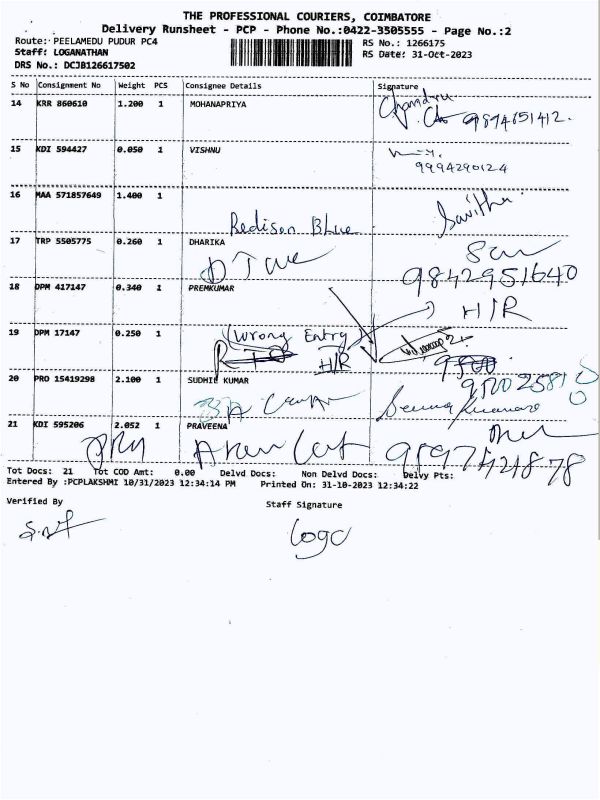 THE PROFESSIONAL COURIERS, COIMBATORE
Delivery Runsheet - PCP - Phone No.:0422-3505555 - Page No.:2
Route: PEELAMEDU PUDUR PC4 RS No.: 1266175
Staff: LOGANATHAN RS Date: 31-Oct-2023
DRS No.: DCJB126617502
S No Consignment No Weight PCS Consignee Details Signature
14 KRR 860610 1.200 1 MOHANAPRIYA
9894651412.
15 KDI 594427 0.050 1 VISHNU
9994290124
16 MAA 571857649 1.400 1
Savitha
Redison Blue
17 TRP 5505775 0.260 1 DHARIKA
9842951640
18 DPM 417147 0.340 1 PREMKUMAR
H/R
19 DPM 17147 0.250 1 (Wrong Entry)
H/R
20 PRO 15419298 2.100 1 SUDHIL KUMAR
21 KDI 595206 2.052 1 PRAVEENA
Tot Docs: 21 Tot COD Amt: 0.00 Delvd Docs: Non Delvd Docs: Delvy Pts:
Entered By :PCPLAKSHMI 10/31/2023 12:34:14 PM Printed On: 31-10-2023 12:34:22
Verified By Staff Signature
Loga